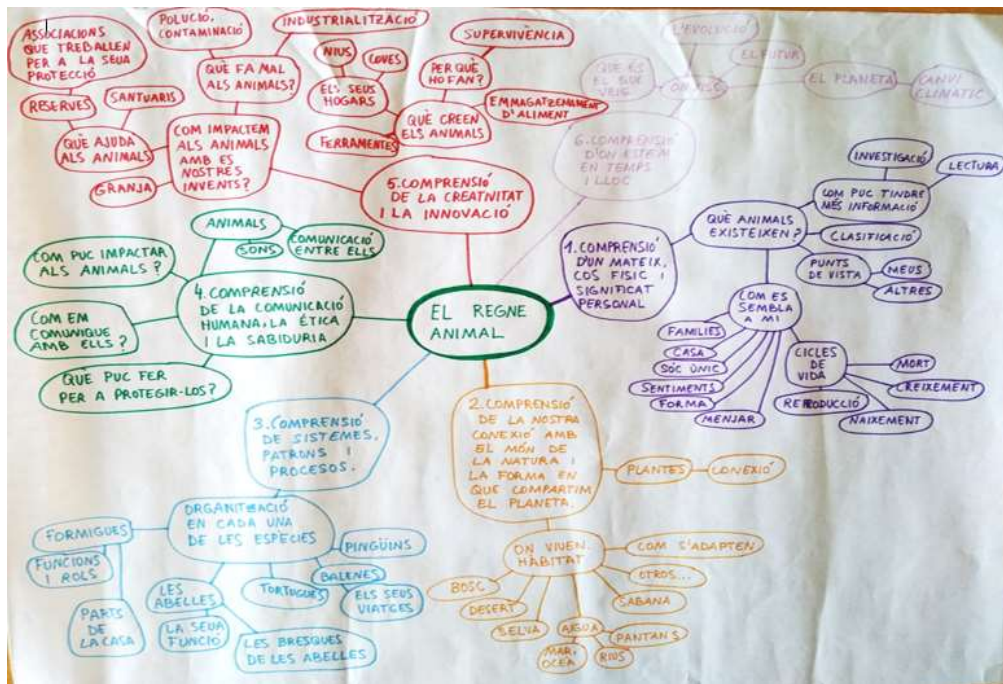 EL REGNE
ANIMAL
1.COMPRENSIÓ
D'UN MATEIX,
COS FISIC I
SIGNIFICAT
PERSONAL
QUÈ ANIMALS
EXISTEIXEN?
COM PUC TINDRE
MÉS INFORMACIÓ
INVESTIGACIÓ
LECTURA
CLASIFICACIÓ
PUNTS
DE VISTA
MEUS
ALTRES
COM ES
SEMBLA
A MI
FAMILIES
CASA
SÓC ÚNIC
SENTIMENTS
FORMA
MENJAR
CICLES
DE
VIDA
MORT
CREIXEMENT
NAIXEMENT
REPRODUCCIÓ
2.COMPRENSIÓ
DE LA NOSTRA
CONEXIÓ AMB
EL MÓN DE
LA NATURA I
LA FORMA EN
QUE COMPARTIM
EL PLANETA.
PLANTES
CONEXIÓ
ON VIUEN.
HÀBITAT
COM S'ADAPTEN
OTROS...
SABANA
PANTANS
AIGUA
RIUS
MAR,
OCEÀ
SELVA
DESERT
BOSC
3.COMPRENSIÓ
DE SISTEMES,
PATRONS I
PROCESOS.
ORGANITZACIÓ
EN CADA UNA
DE LES ESPÈCIES
FORMIGUES
FUNCIONS
I ROLS
PARTS
DE
LA CASA
LES
ABELLES
LA SEUA
FUNCIÓ
LES BRESQUES
DE LES ABELLES
TORTUGUES
PINGÜINS
BALENES
ELS SEUS
VIATGES
4.COMPRENSIÓ
DE LA COMUNICACIÓ
HUMANA, LA ÉTICA
I LA SABIDURIA
ANIMALS
SONS
COMUNICACIÓ
ENTRE ELLS
COM PUC IMPACTAR
ALS ANIMALS?
COM EM
COMUNIQUE
AMB ELLS?
QUÈ PUC FER
PER A PROTEGIR-LOS?
5.COMPRENSIÓ
DE LA CREATIVITAT
I LA INNOVACIÓ
COM IMPACTEM
ALS ANIMALS
AMB ES
NOSTRES
INVENTS?
QUÈ FA MAL
ALS ANIMALS?
POLUCIÓ,
CONTAMINACIÓ
INDUSTRIALITZACIÓ
QUÈ AJUDA
ALS ANIMALS
ASSOCIACIONS
QUE TREBALLEN
PER A LA SEUA
PROTECCIÓ
RESERVES
SANTUARIS
GRANJA
QUÈ CREEN
ELS ANIMALS
ELS SEUS
HOGARS
NIUS
COVES
FERRAMENTES
PER QUÈ
HO FAN?
SUPERVIVÈNCIA
EMMAGATZEMAMENT
D'ALIMENT
6.COMPRENSIÓ
D'ON ESTEM
EN TEMPS
I LLOC
QUE ÉS
EL QUE
VEIG
L'EVOLUCIÓ
EL FUTUR
EL PLANETA
CANVI
CLIMÀTIC